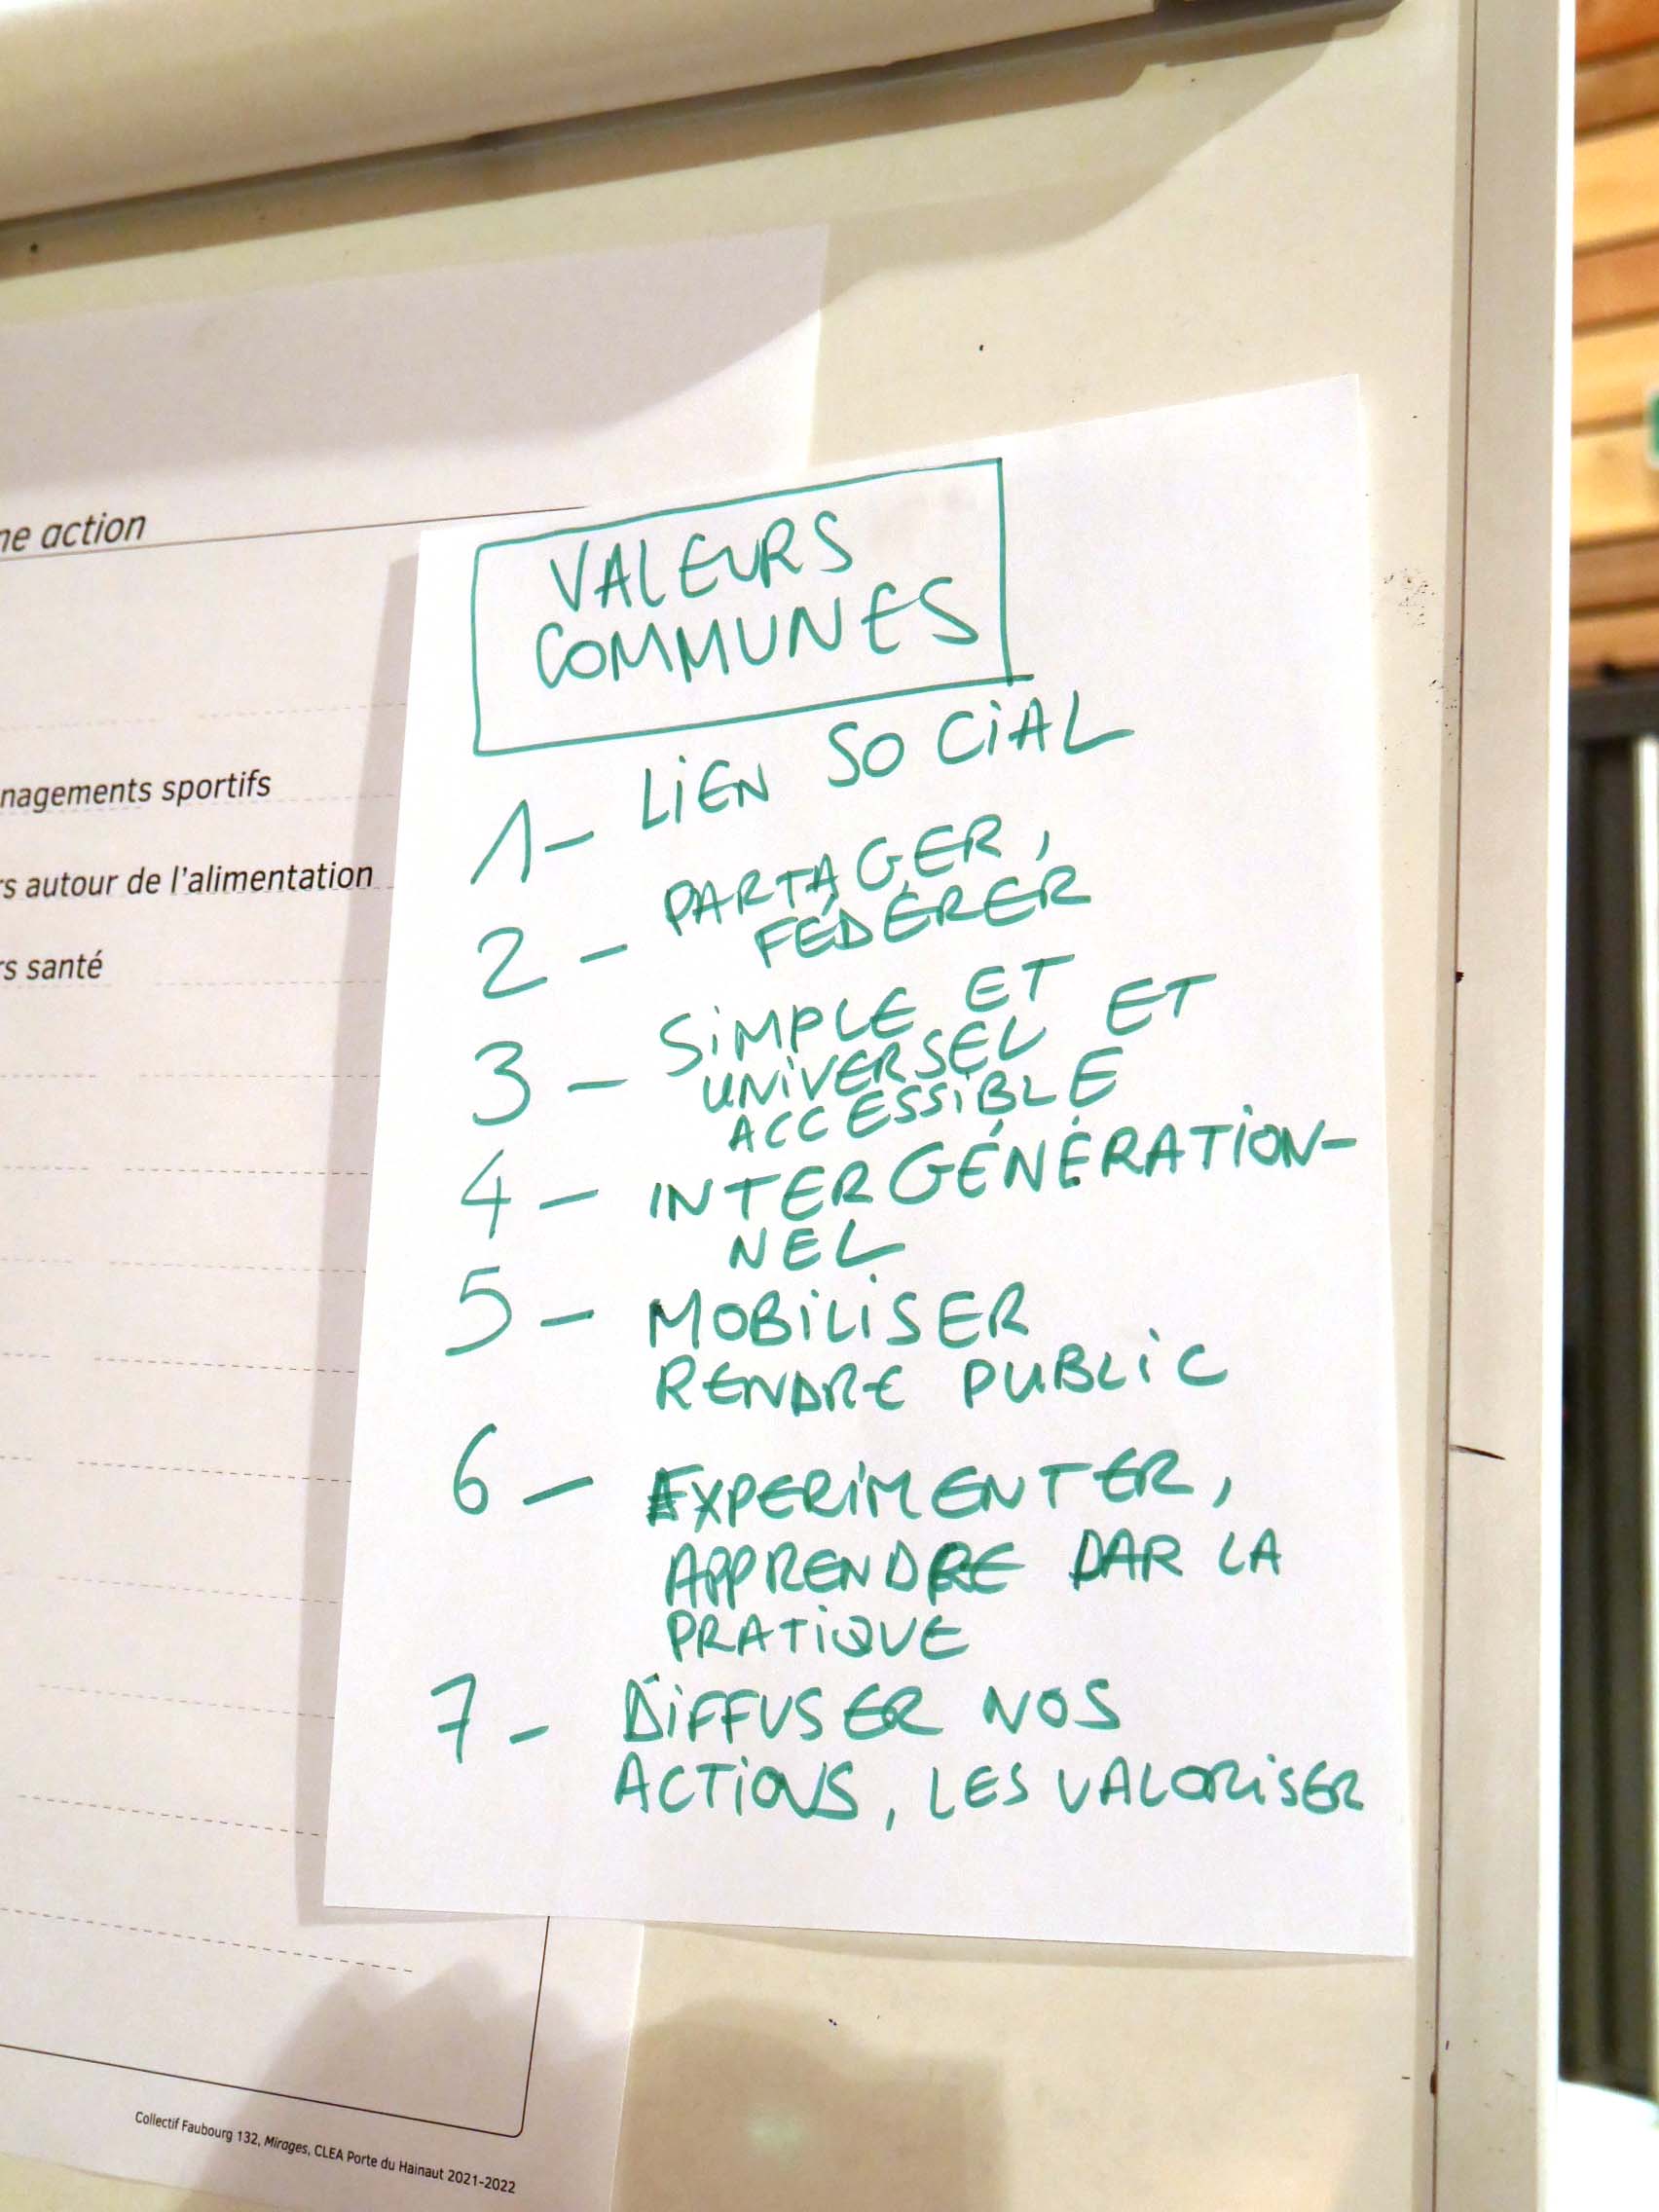 ne action
nagements sportifs
rs autour de l'alimentation
rs santé
VALEURS
COMMUNES
1- LiEN SOCiAL
2- PARTAGER,
FÉDÉRER
3- SiMPLE ET
UNiVERSEL ET
ACCESSiBLE
4- INTERGÉNÉRATiON-
NEL
5- MOBiLiSER
RENDRE PUBLiC
6- EXPERiMENTER,
APPRENDRE PAR LA
PRATiQUE
7- DiFFUSER NOS
ACTiONS, LES VALORiSER
Collectif Faubourg 132, Mirages, CLEA Porte du Hainaut 2021-2022